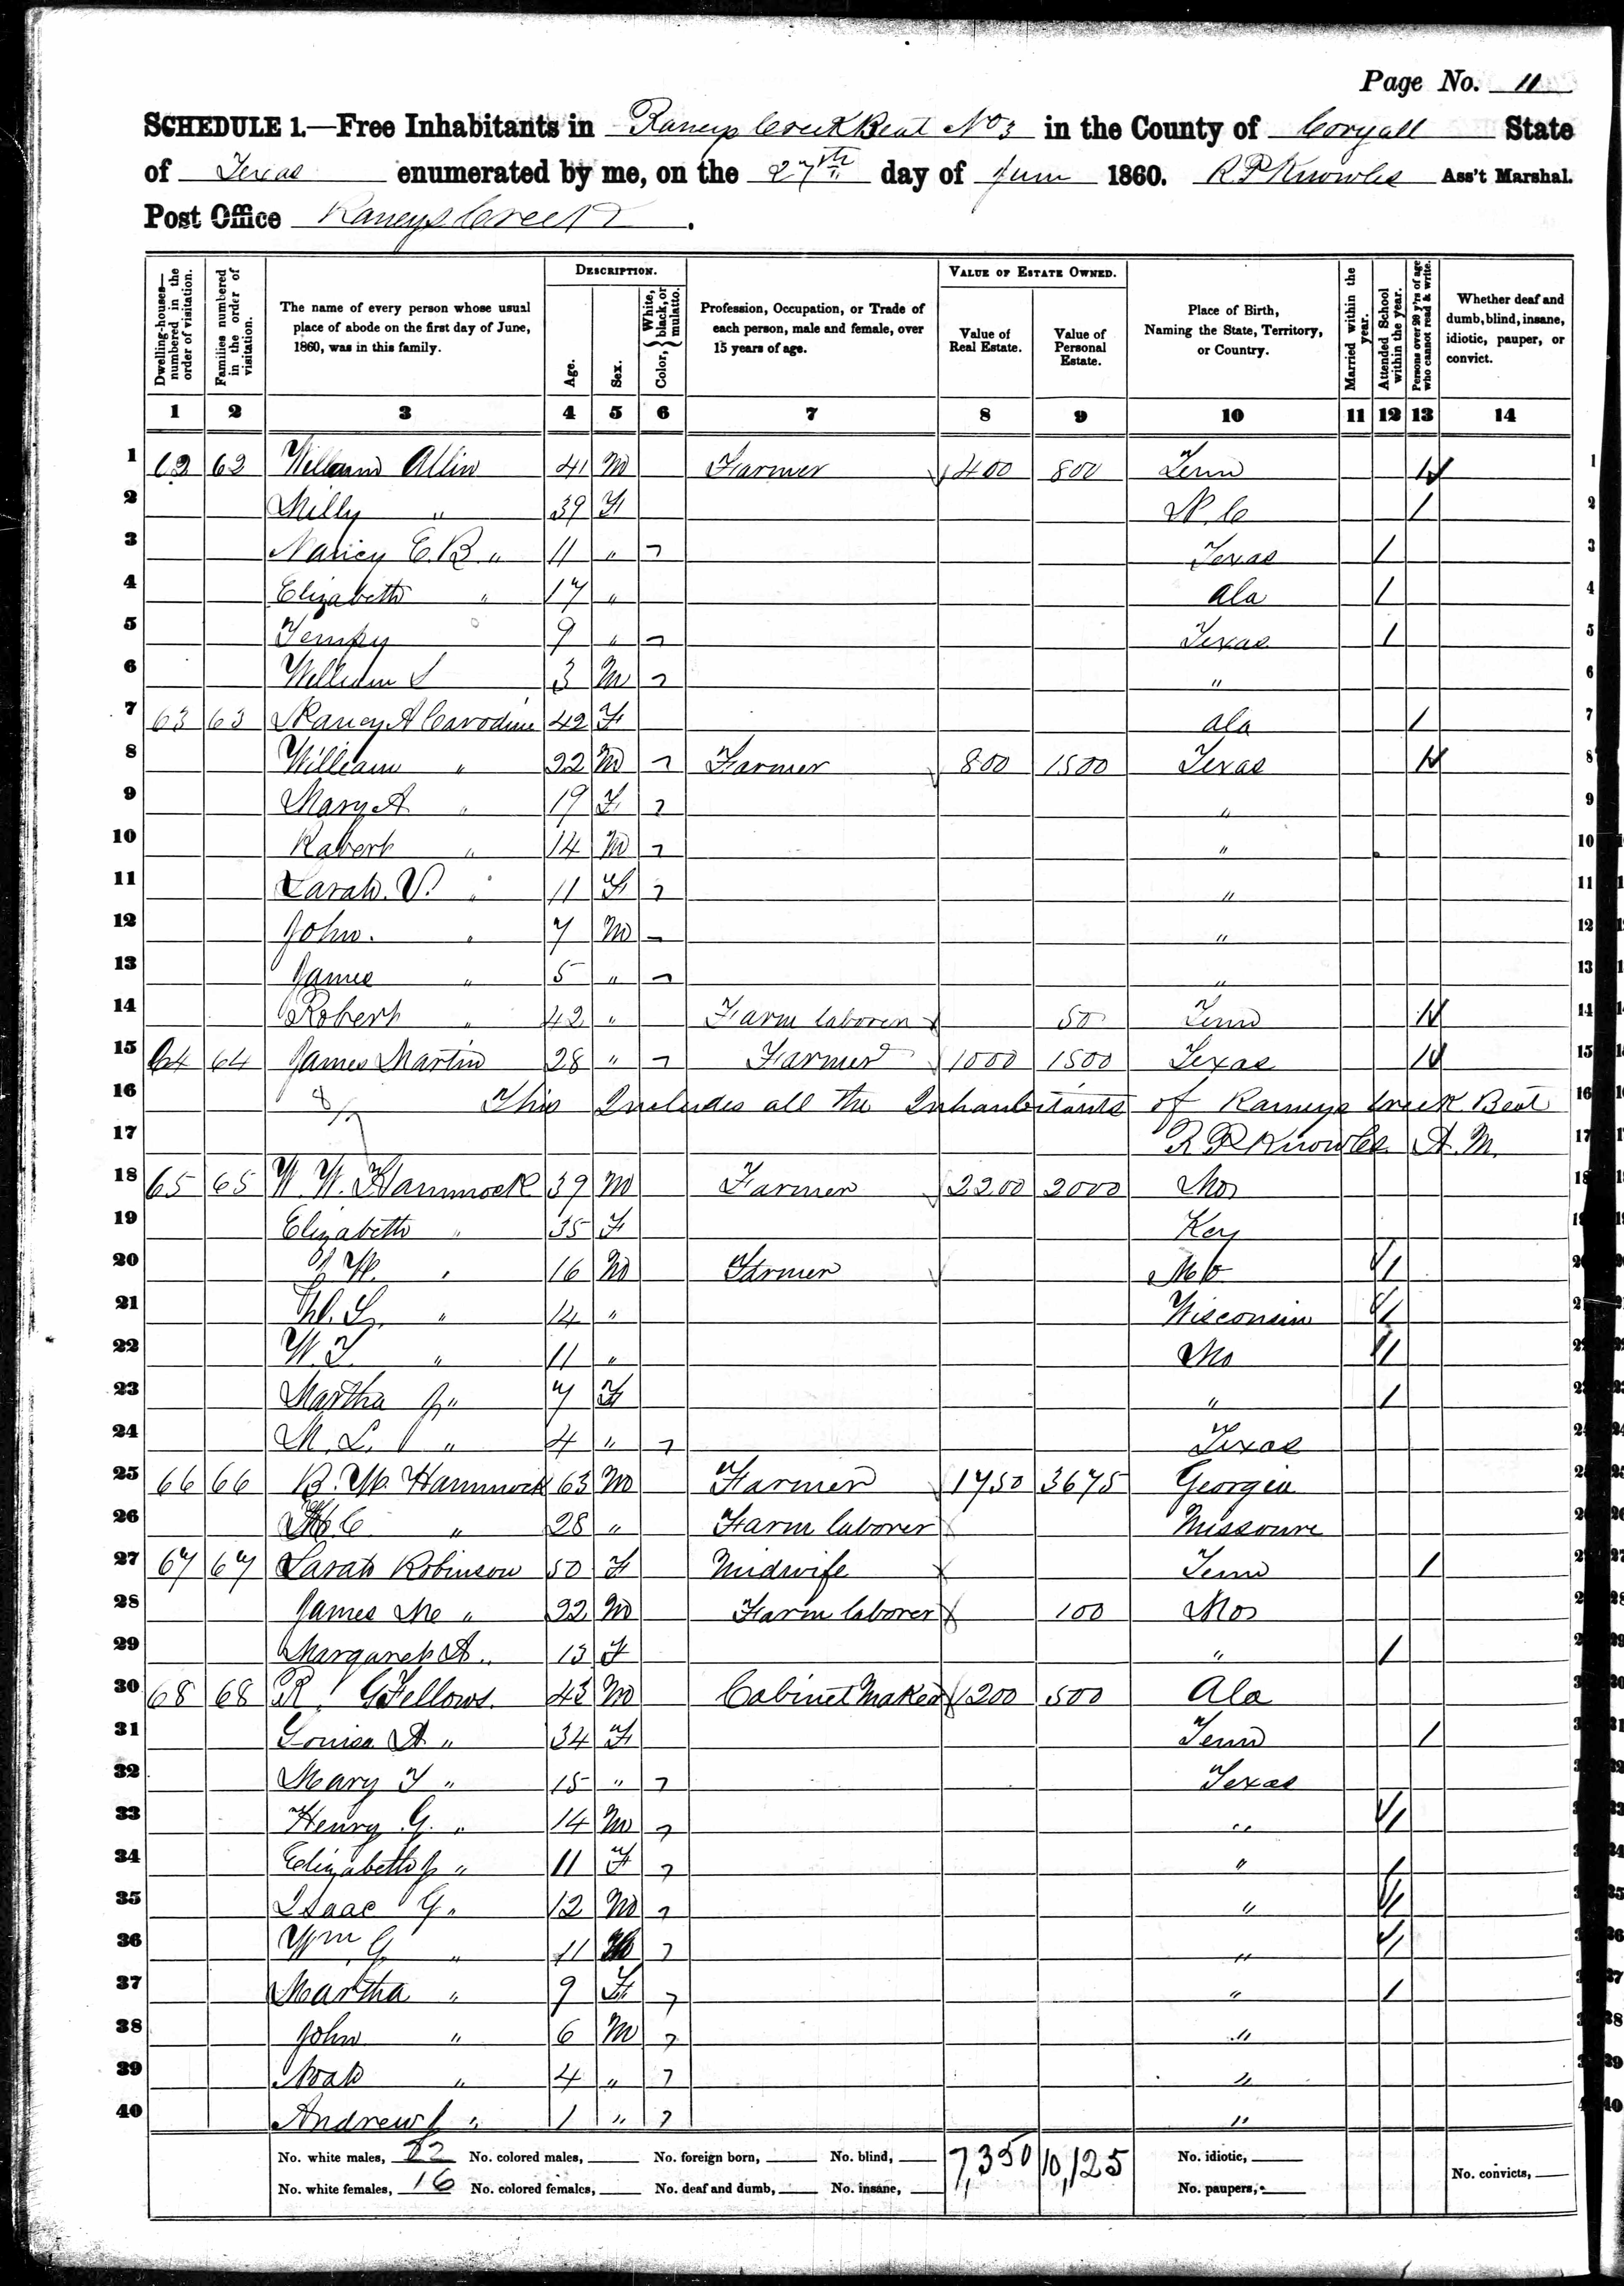 Page No. 11
SCHEDULE 1.—Free Inhabitants in Raneys Creek Beat No 3 in the County of Coryall State
of Texas enumerated by me, on the 27th day of June 1860. R P Knowles Ass't Marshal.
Post Office Raneys Creek.
Dwelling-houses—numbered in the order of visitation. Families numbered in the order of visitation. The name of every person whose usual place of abode on the first day of June, 1860, was in this family. DESCRIPTION. Age. Sex. Color, White, black, or mulatto. Profession, Occupation, or Trade of each person, male and female, over 15 years of age. VALUE OF ESTATE OWNED. Value of Real Estate. Value of Personal Estate. Place of Birth, Naming the State, Territory, or Country. Married within the year. Attended School within the year. Persons over 20 y'rs of age who cannot read & write. Whether deaf and dumb, blind, insane, idiotic, pauper, or convict.
1 2 3 4 5 6 7 8 9 10 11 12 13 14
1 62 62 William Allin 41 M Farmer 400 800 Tenn / 1
2 Milly " 39 F N. C / 2
3 Nancy E. B. " 11 " 7 Texas / 3
4 Elizabeth " 17 " Ala / 4
5 Tempy " 9 " 7 Texas / 5
6 William S 3 M 7 " 6
7 63 63 Nancy A Carodine 42 F Ala / 7
8 William " 22 M 7 Farmer 800 1500 Texas / 8
9 Mary A. " 19 F 7 " 9
10 Robert " 14 M 7 " 10
11 Sarah. V. " 11 F 7 " 11
12 John. " 7 M 7 " 12
13 James " 5 " 7 " 13
14 Robert " 42 " Farm laborer 50 Tenn / 14
15 64 64 James Martin 28 " 7 Farmer 1000 1500 Texas / 15
16 This Includes all the Inhanbitants of Raneys Creek Beat 16
17 R P Knowles A. M. 17
18 65 65 W. W. Hammock 39 M Farmer 2200 2000 Mo
19 Elizabeth " 35 F Key
20 J. W. " 16 M Farmer Mo /
21 " 14 " Wisconsin /
22 W. T. " 11 " Mo /
23 Martha J " 7 F " /
24 M. L. " 4 " 7 Texas
25 66 66 B. W. Hammock 63 M Farmer 1750 3675 Georgia
26 H. C " 28 " Farm laborer Missoure
27 67 67 Sarah Robinson 50 F Midwife Tenn /
28 James Mc " 22 M Farm laborer 100 Mo
29 Margaret A. " 13 F " /
30 68 68 R. G Fellows. 43 M Cabinet Maker 1200 500 Ala
31 Louisa A " 34 F Tenn /
32 Mary T " 15 " 7 Texas
33 Henry G. " 14 M 7 " /
34 Elizabeth J " 11 F 7 " /
35 Isaac G " 12 M 7 " /
36 Wm G " 11 M 7 " /
37 Martha " 9 F 7 " /
38 John " 6 M 7 "
39 Noah " 4 " 7 "
40 Andrew J " 1 " 7 "
No. white males, 22 No. colored males, No. foreign born, No. blind, 7,350 10,125 No. idiotic, No. convicts,
No. white females, 16 No. colored females, No. deaf and dumb, No. insane, No. paupers,